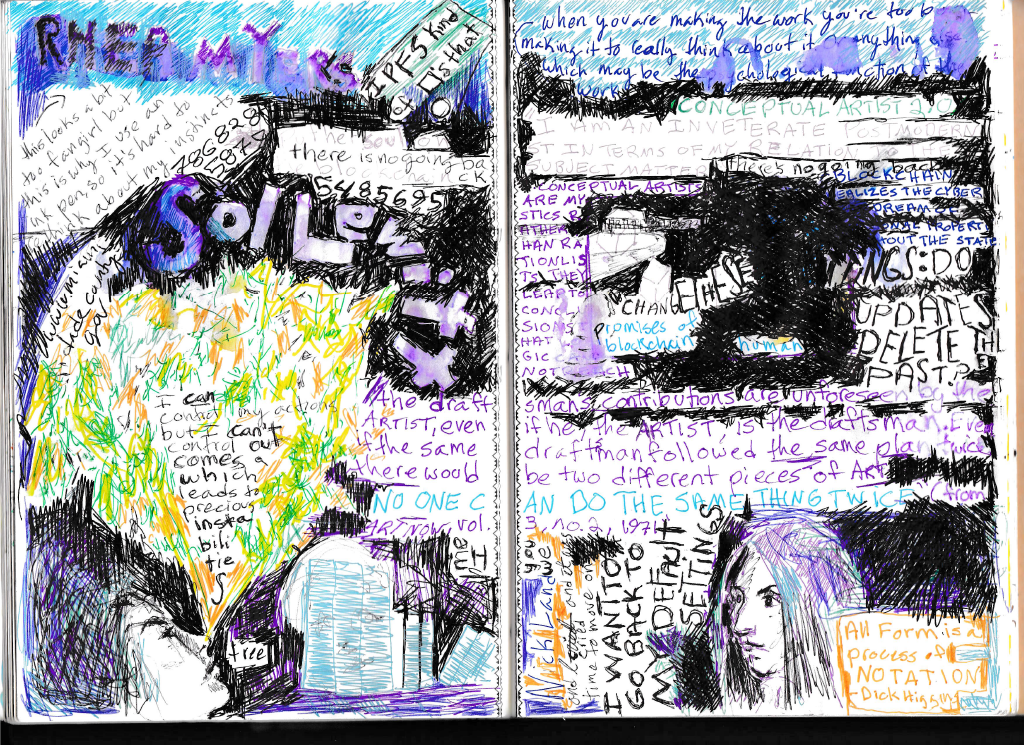 RHEA MYERS
IPFS Kind
of Is that
this looks abt
too fangirl but
this is why I use an
ink pen, so it's hard to
about my instincts
786828
5872
the soul
there is no going ba
blockchain ck
5485695
Sol LeWitt
hide cuning
I can
control my actions
but I can't
control out
comes a
which
leads to
precious
insta
bili
tie
S
free
the draft
ARTIST, even
if the same
there would
NO ONE C
ART NOW, vol.
me
I
- when you are making the work you're too b
making it to really think about it or anything else
which may be the psychological function of the
work
CONCEPTUAL ARTIST 2.0
I AM AN INVETERATE POSTMODERN
IST IN TERMS OF MY RELATION TO THE
SUBJECT MATTER
there's no going back
BLOCKCHAIN
REALIZES THE CYBER
DREAM OF
PROPERTY
OUT THE STATE
CONCEPTUAL ARTISTS
ARE MY
STICS R
ATHER T
HAN RA
TIONLIS
TS THEY
LEAP TO
CONCLU
SIONS T
HAT
GIC
NOT
CHANGE THESE
promises of
blockchain
human
INGS: DO
UPDATES
DELETE TH
PAST?
smans contributions are unforeseen by the
if he, the ARTIST, is the draftsman. Even
draftman followed the same plan twice
be two different pieces of ART
AN DO THE SAME THING TWICE (from
3, no. 2, 1971
you
Nick Land we
Time to move on
I WANT TO
GO BACK TO
MY DEFAULT
SETTINGS
All Form is a
process of
NOTATION
- Dick Higgins